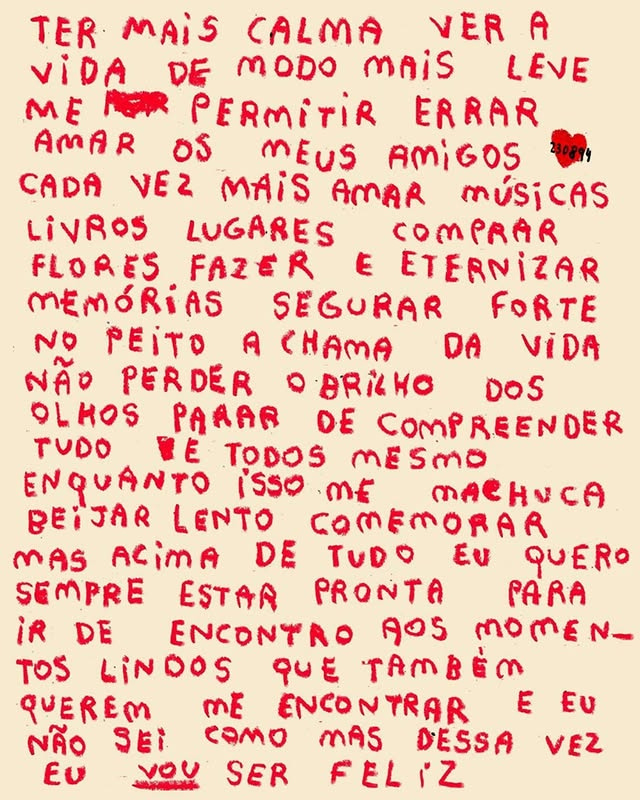 TER MAIS CALMA VER A
VIDA DE MODO MAIS LEVE
ME PERMITIR ERRAR
AMAR OS MEUS AMIGOS 230894
CADA VEZ MAIS AMAR MÚSICAS
LIVROS LUGARES COMPRAR
FLORES FAZER E ETERNIZAR
MEMÓRÍAS SEGURAR FORTE
NO PEITO A CHAMA DA VIDA
NÃO PERDER O BRILHO DOS
OLHOS PARAR DE COMPREENDER
TUDO E TODOS MESMO
ENQUANTO ISSO ME MACHUCA
BEIJAR LENTO COMEMORAR
MAS ACIMA DE TUDO EU QUERO
SEMPRE ESTAR PRONTA PARA
IR DE ENCONTRO AOS MOMEN-
TOS LINDOS QUE TAMBÉM
QUEREM ME ENCONTRAR E EU
NÃO SEI COMO MAS DESSA VEZ
EU VOU SER FELIZ